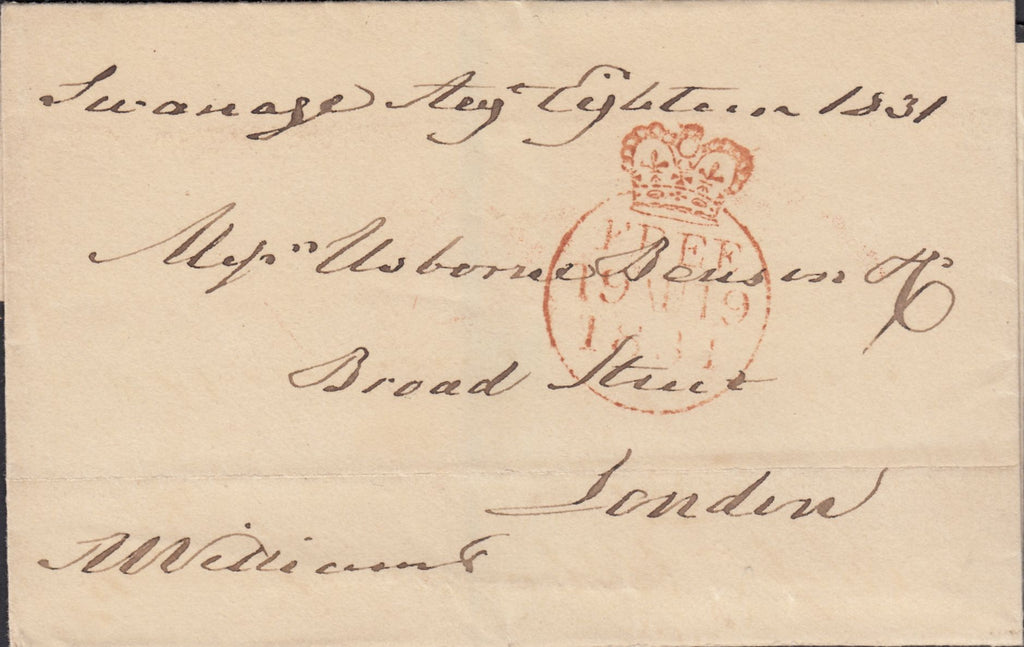 Swanage Augt Eighteen 1831
FREE
19 AU 19
1831
Messrs Usborne Benson & Co
Broad Street
London
WWilliams